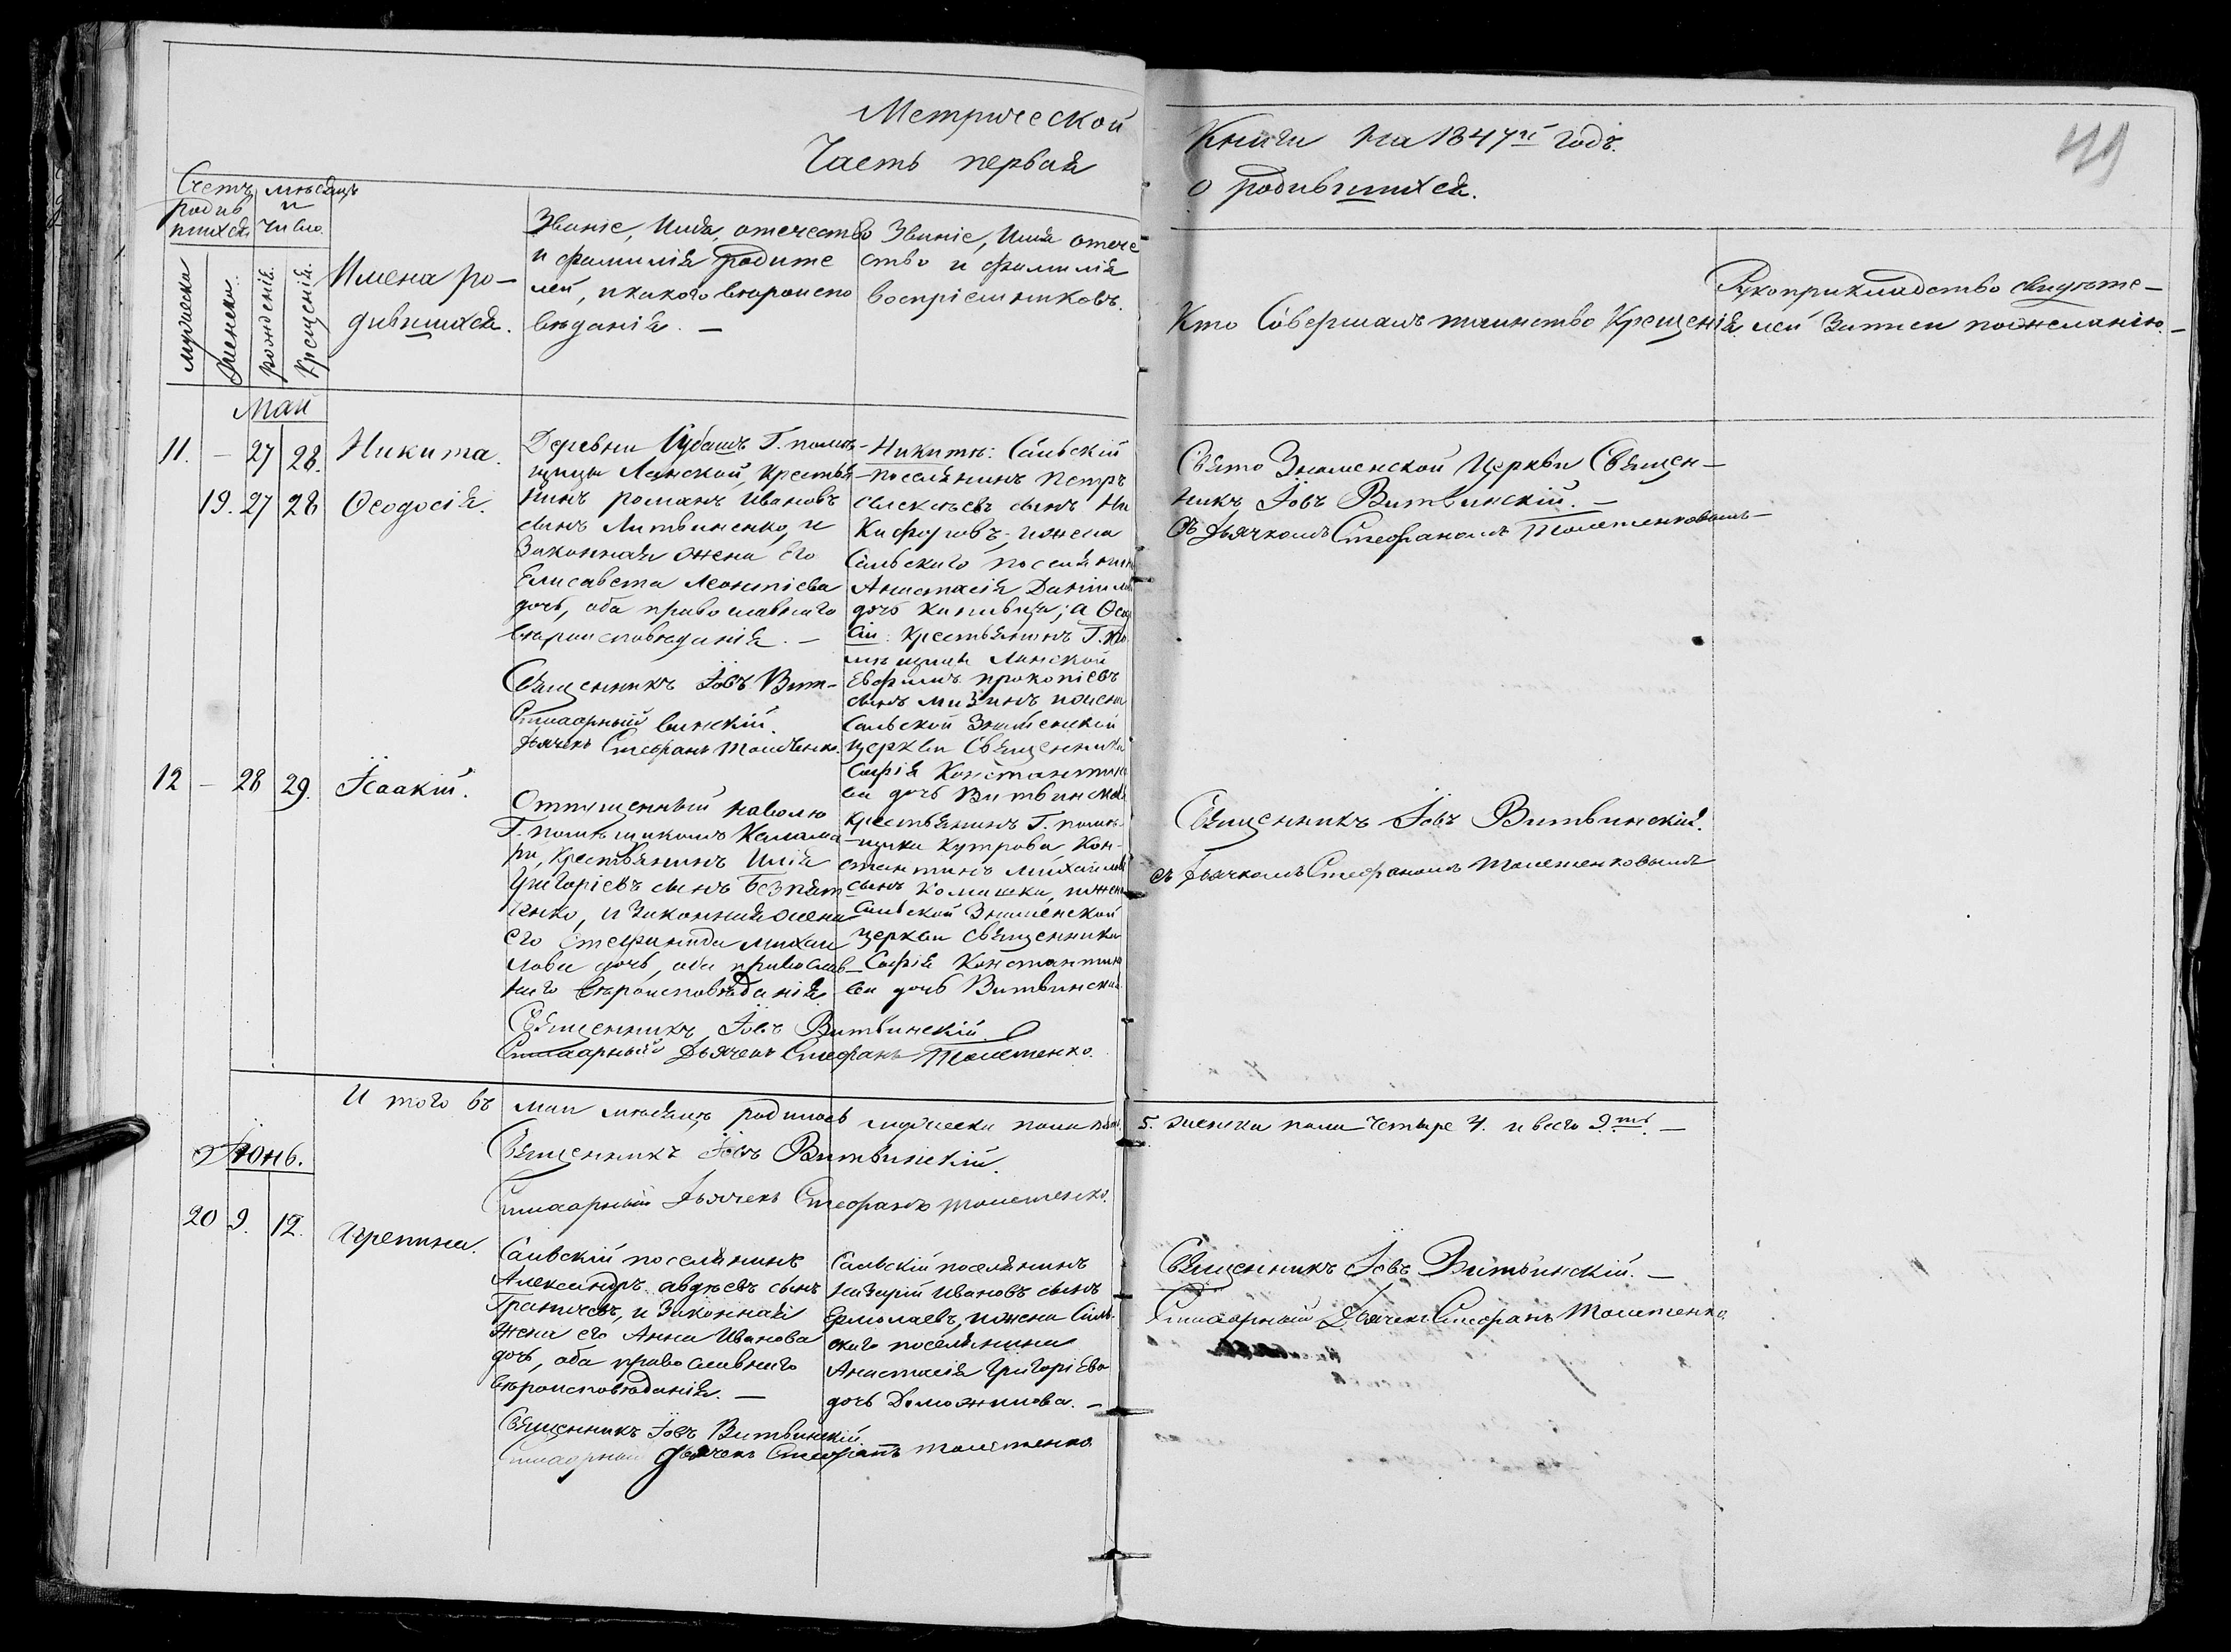 Метрической
Часть первая
Книги на 1847й годъ.
о родившихся.
49
Счетъ
родив
шихся
мѣсяцъ
и
число.
мужеска
женска.
рожденія.
Крещенія.
Имена ро-
дившихся.
Званіе, Имя, отечество
и фамилія родите
лей, и какого вѣроиспо
вѣданія. —
Званіе, Имя отече
ство и фамилія
воспріемниковъ.
Кто Совершалъ таинство Крещенія.
Рукоприкладство свидѣте-
лей Записи пожеланію. —
Май
11. — 27 28. Никита.
19. 27 28 Ѳеодосія.
Деревни Г. помѣ-
щицы Ланской, Крестья
нинъ романъ Ивановъ
сынъ Литвиненко, и
Законная жена Его
Елисавета Леонтіева
дочь, оба православнаго
вѣроисповѣданія. —
Священникъ Іовъ Вит-
винскій.
Стихарный
Дьячекъ Стефанъ
Никиты:
поселянинъ Петръ
Алексѣевъ сынъ Ни
кифоровъ, и жена
поселянина
Анастасія Даніилова
дочь а Ѳеодо
сіи: Крестьянинъ Г. по
мѣщицы Ланской
Евфимъ прокопіевъ
сынъ Мизинъ и жена
Знаменской
церкви Священника
Софія Константино
ва дочь Витвинская
Свято Знаменской Церкви Священ-
никъ Іовъ Витвинскій. —
съ Дьячкомъ Стефаномъ
12 — 28 29. Ісаакій.
Отпущенный наволю
Г. помѣщикомъ
Крестьянинъ Илія
Григоріевъ сынъ Безпят
ченко, и Законная жена
его Стефанида Михаи
лова дочь, оба православ
наго вѣроисповѣданія
Священникъ Іовъ Витвинскій
Стихарный Дьячекъ Стефанъ
Крестьянинъ Г. помѣ-
щика Кутрова Кон-
стантинъ Михайловъ
сынъ и жена
Знаменской
церкви священника
Софія Константино
ва дочь Витвинская
Священникъ Іовъ Витвинскій.
съ Дьячкомъ Стефаномъ
И того въ маи мѣсяцѣ родилось мужеска пола пять 5. женска пола четыре 4. и всего 9ть. —
Священникъ Іовъ Витвинскій.
Стихарный Дьячекъ Стефанъ
Іюнь.
20 9. 12. Агрепина.
поселянинъ
Александръ авдѣевъ сынъ
и Законная
Жена его Анна Иванова
дочь, оба православнаго
вѣроисповѣданія. —
Священникъ Іовъ Витвинскій
Стихарный Дьячекъ Стефанъ
поселянинъ
Назарій Ивановъ сынъ
Ермолаевъ, и жена
поселянина
Анастасія Григоріева
дочь Доможилова. —
Священникъ Іовъ Витвинскій. —
Стихарный Дьячекъ Стефанъ